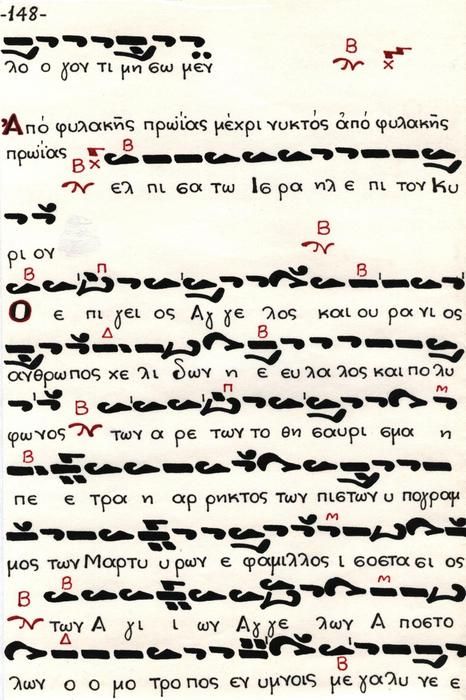 -148-
λο ο γον τι μη σω μεν
Β
Ἀπό φυλακῆς πρωΐας μέχρι νυκτός ἀπό φυλακῆς
πρωΐας Β
Β ελ πι σα τω Ισ ρα ηλ ε πι τον Κυ
ρι ον
Β
Β Π Β
Ο ε πι γει ος Αγ γε λος και ου ρα νι ος
Δ Β
ανθρωπος χε λι δων η ε ευ λα λος και πο λυ
Β Π Μ
φωνος των α ρε των το θη σαυρι σμα η
Β
πε ε τρα η αρ ρηκτος των πιστων υ πογραμ
Μ
μος των Μαρτυ υ ρων ε φαμιλλος ι σοστα σι ος
Β Β Μ
των Α γι ι ων Αγ γε λων Α ποστο
Δ Β
λων ο ο μο τρο πος εν υμνοις με γαλυ νε ε